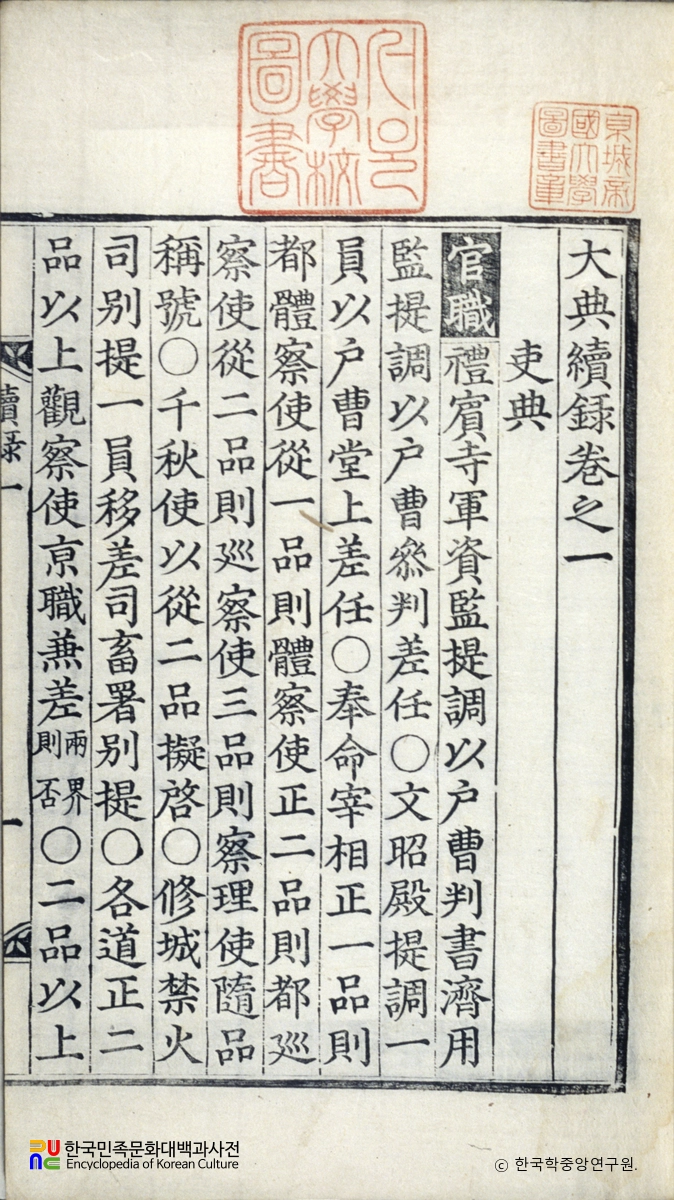 大典續錄卷之一
吏典
官職 禮賓寺軍資監提調以戶曹判書濟用
監提調以戶曹叅判差任○文昭殿提調一
員以戶曹堂上差任○奉命宰相正一品則
都體察使從一品則體察使正二品則都巡
察使從二品則巡察使三品則察理使隨品
稱號○千秋使以從二品擬啓○修城禁火
司別提一員移差司畜署別提○各道正二
品以上觀察使京職兼差兩界則否○二品以上
續錄一
一
京城帝國大學圖書章
大學校圖書
한국민족문화대백과사전
Encyclopedia of Korean Culture
© 한국학중앙연구원.